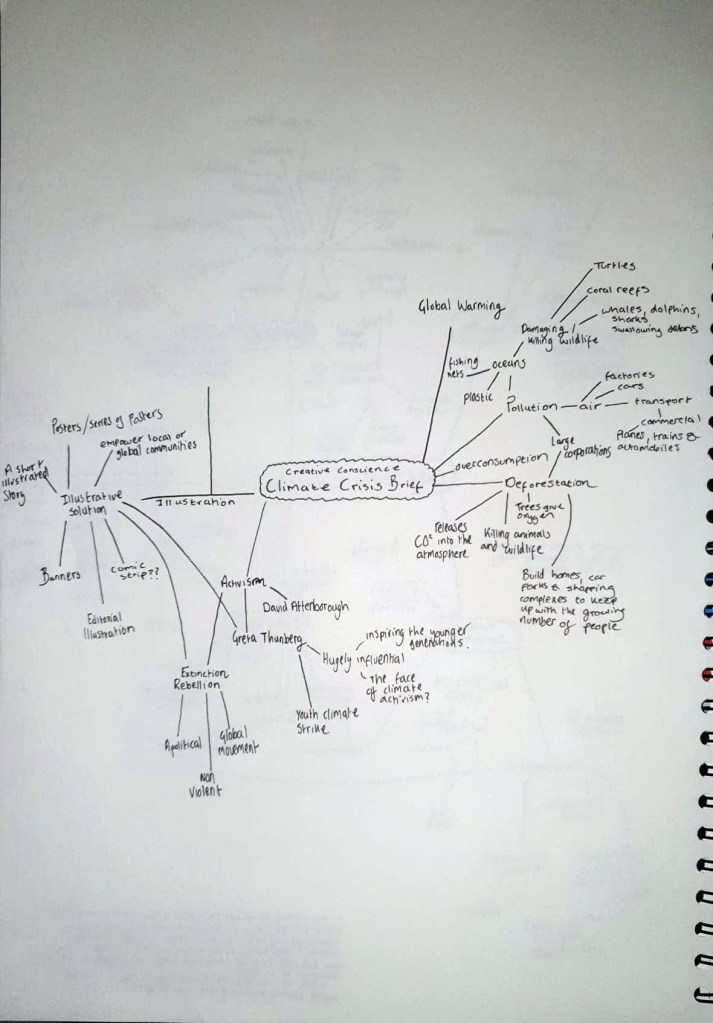 Turtles
coral reefs
whales, dolphins,
sharks
swallowing debris
Damaging
killing wildlife
Global Warming
fishing
nets
oceans
plastic
Pollution
air
factories
cars
transport
commercial
Planes, trains &
automobiles
Large
corporations
overconsumption
Deforestation
Trees give
oxygen
releases
CO² into the
atmosphere
Killing animals
and wildlife
Build homes, car
parks & shopping
complexes to keep
up with the growing
number of people
Creative Conscience
Climate Crisis Brief
Illustration
Posters/series of Posters
empower local or
global communities
A short
illustrated
Story
Illustrative
solution
Banners
comic
strip??
Editorial
Illustration
Activism
David Attenborough
Greta Thunberg
Hugely influential
inspiring the younger
generations.
The face
of climate
activism?
Youth climate
Strike
Extinction
Rebellion
Apolitical
Non
Violent
Global
movement